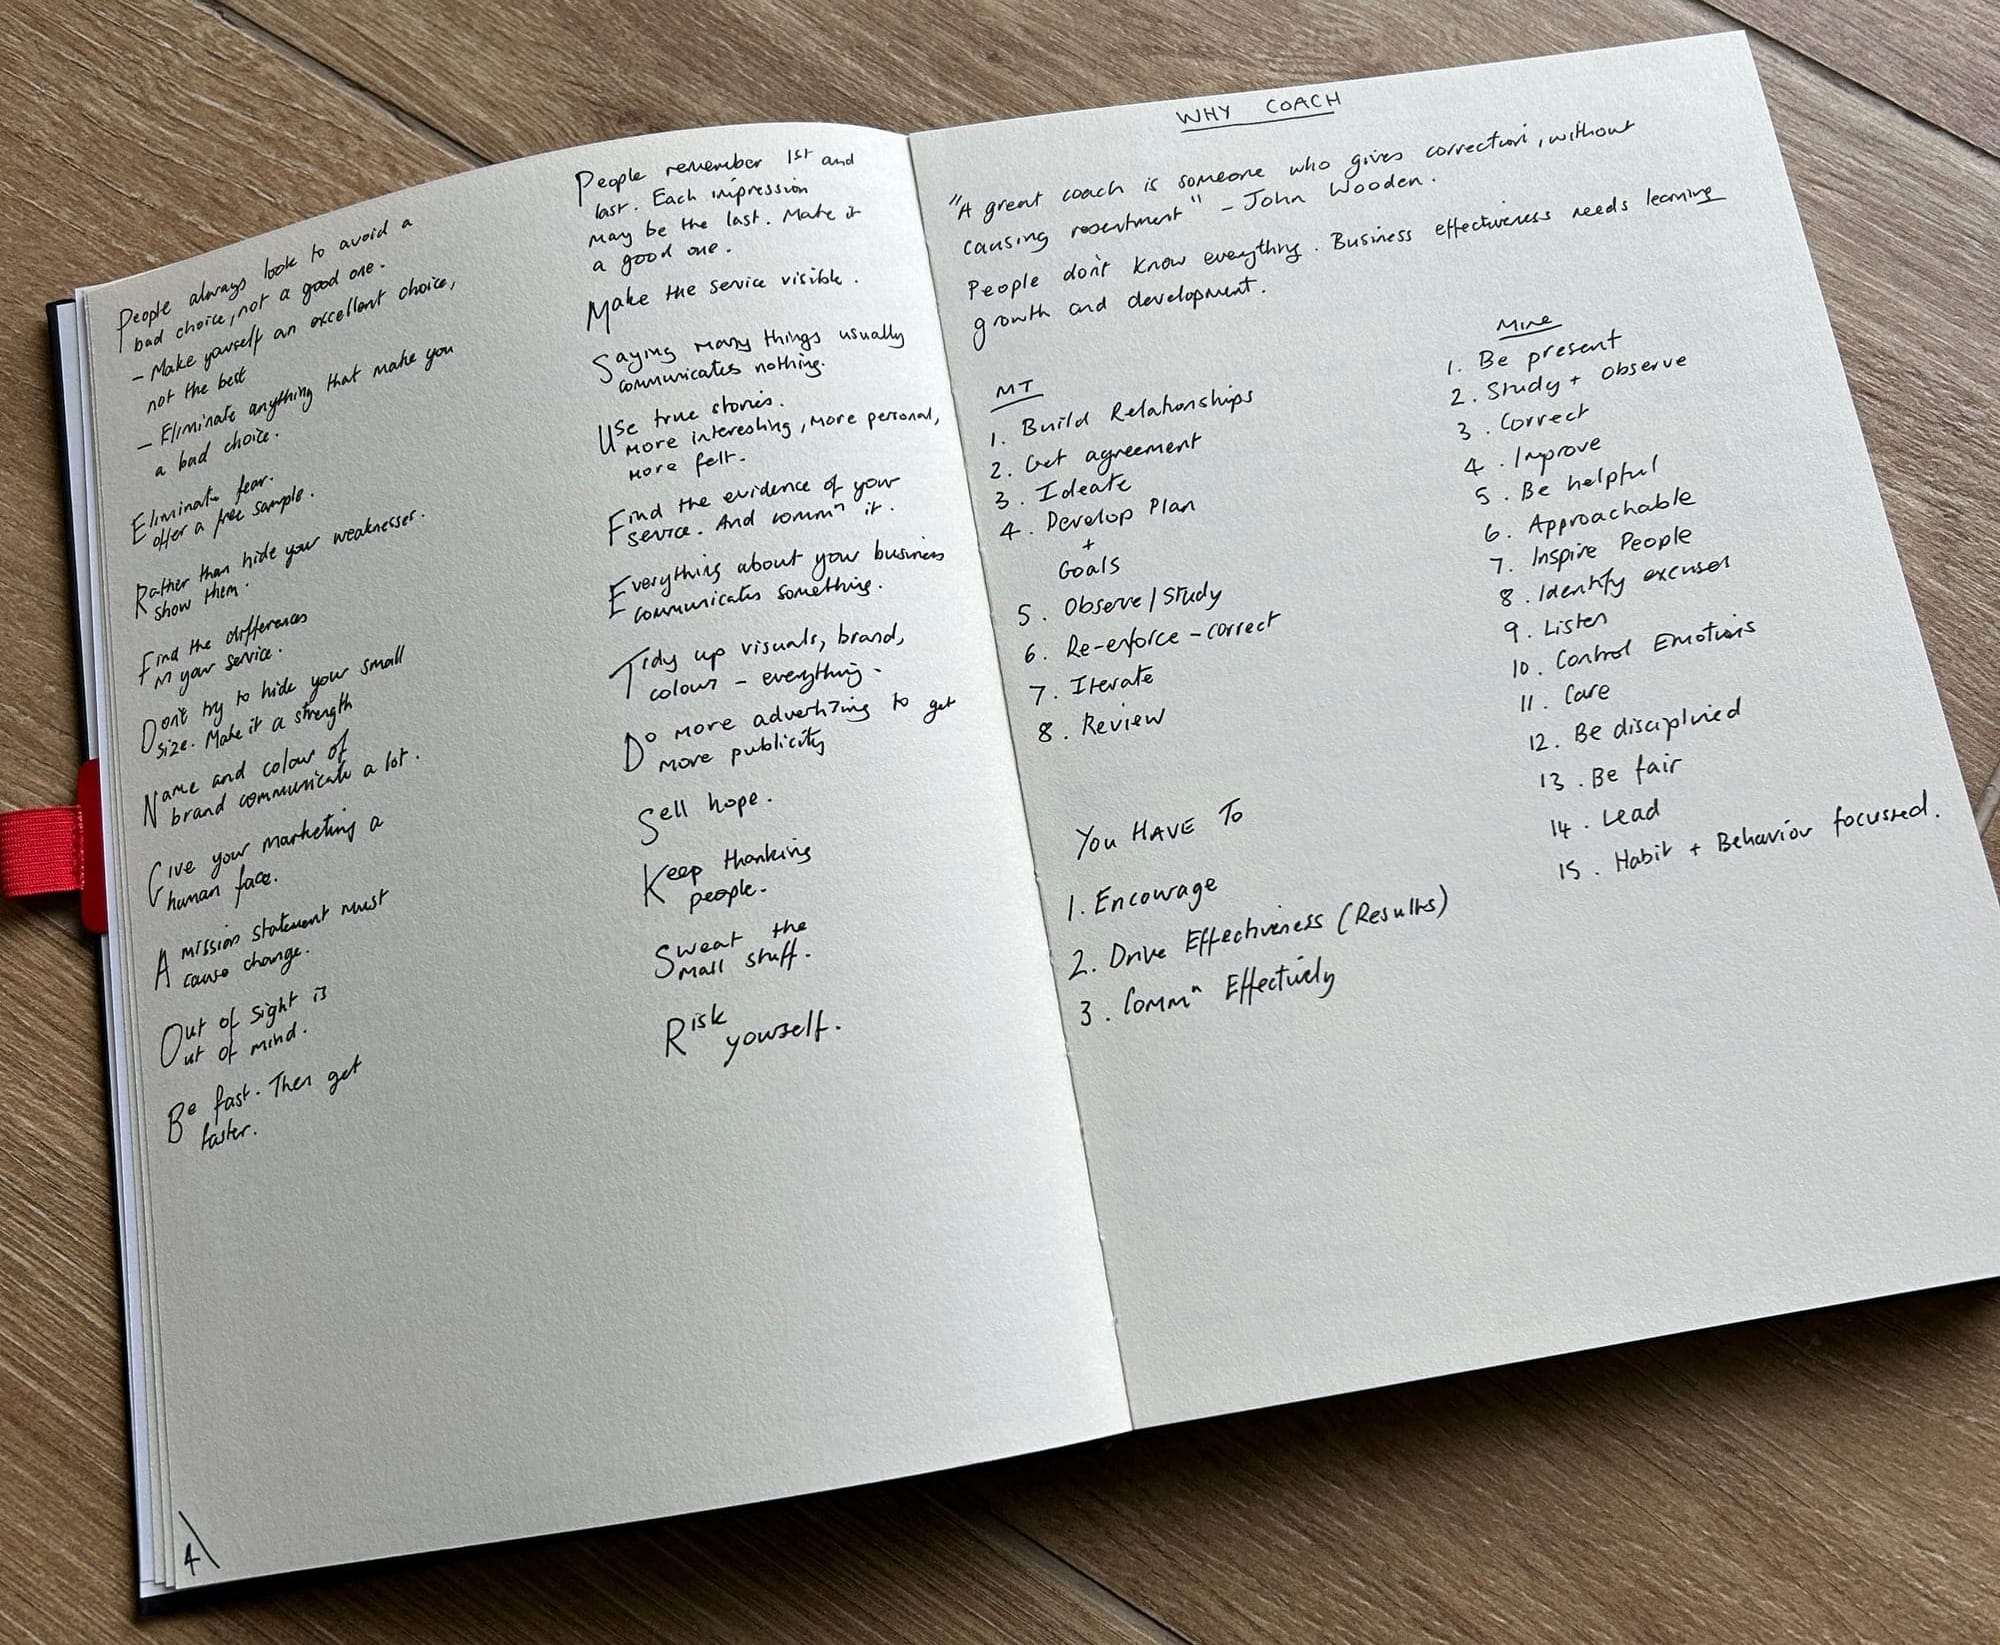 People always look to avoid a
bad choice, not a good one.
- Make yourself an excellent choice,
not the best
- Eliminate anything that make you
a bad choice.
Eliminate fear.
offer a free sample.
Rather than hide your weaknesses.
show them.
Find the differences
in your service.
Don't try to hide your small
size. Make it a strength
Name and colour of
brand communicate a lot.
Give your marketing a
human face.
A mission statement must
cause change.
Out of sight is
out of mind.
Be fast. Then get
faster.
4
People remember 1st and
last. Each impression
may be the last. Make it
a good one.
Make the service visible.
Saying many things usually
communicates nothing.
Use true stories.
More interesting, more personal,
more felt.
Find the evidence of your
service. And commⁿ it.
Everything about your business
communicates something.
Tidy up visuals, brand,
colour - everything.
Do more advertizing to get
more publicity
Sell hope.
Keep thanking
people.
Sweat the
small stuff.
Risk
yourself.
WHY COACH
"A great coach is someone who gives correction, without
causing resentment" - John Wooden.
People don't know everything. Business effectiveness needs learning
growth and development.
MT
1. Build Relationships
2. Get agreement
3. Ideate
4. Develop Plan
+
Goals
5. Observe/Study
6. Re-enforce - correct
7. Iterate
8. Review
You HAVE To
1. Encourage
2. Drive Effectiveness (Results)
3. Commⁿ Effectively
Mine
1. Be present
2. Study + observe
3. Correct
4. Improve
5. Be helpful
6. Approachable
7. Inspire People
8. Identify excuses
9. Listen
10. Control Emotions
11. Care
12. Be disciplined
13. Be fair
14. Lead
15. Habit + Behavior focussed.